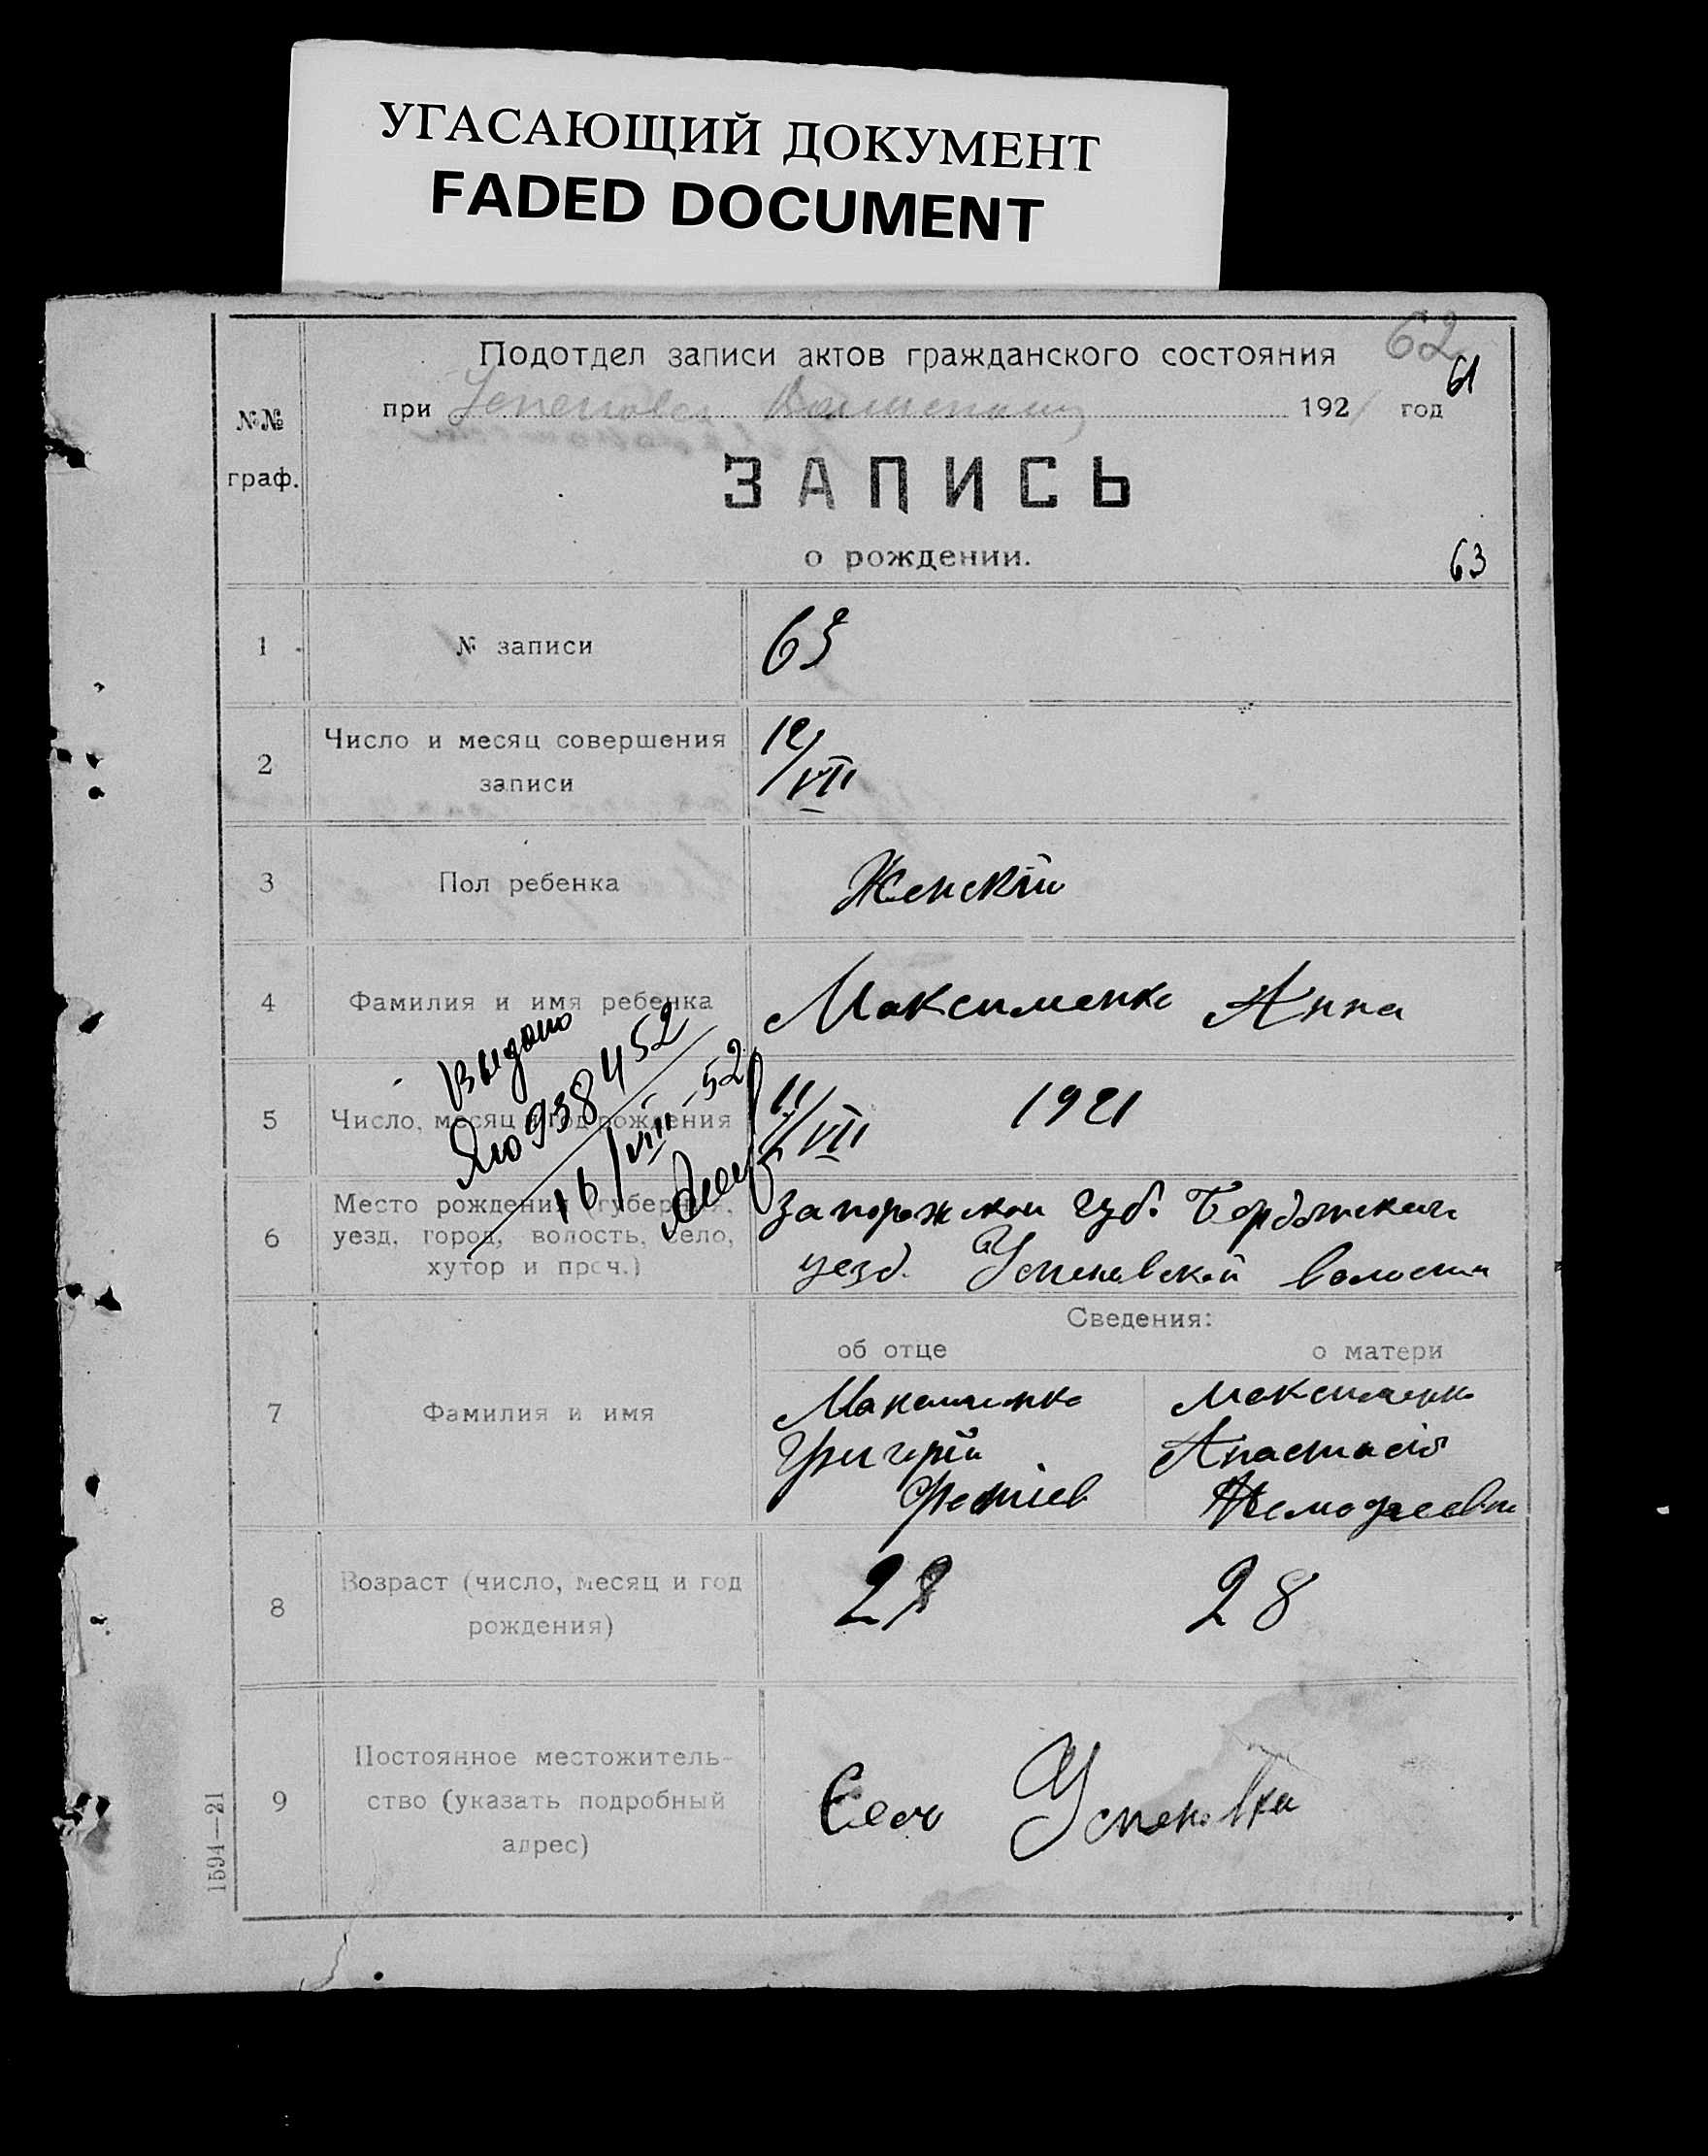 УГАСАЮЩИЙ ДОКУМЕНТ
FADED DOCUMENT
62
Подотдел записи актов гражданского состояния
61
при 1921 год
№№
граф.
ЗАПИСЬ
о рождении.
63
1 № записи 63
2 Число и месяц совершения
записи
12/VII
3 Пол ребенка Женскій
4 Фамилия и имя ребенка Максименко Анна
Выдано
ЯЮ 938452
16/VIII-52
5 Число, месяц и год рождения 11/VII 1921
6 Место рождения (губерния,
уезд, город, волость, село,
хутор и проч.)
Запорожской губ. Бердянскаго
уезд. Успеновской волости
Сведения:
об отце о матери
7 Фамилия и имя
Максименко Максименко
Григорій Анастасія
8 Возраст (число, месяц и год
рождения)
28
9 Постоянное местожитель-
ство (указать подробный
адрес)
Село Успеновка
1594—21